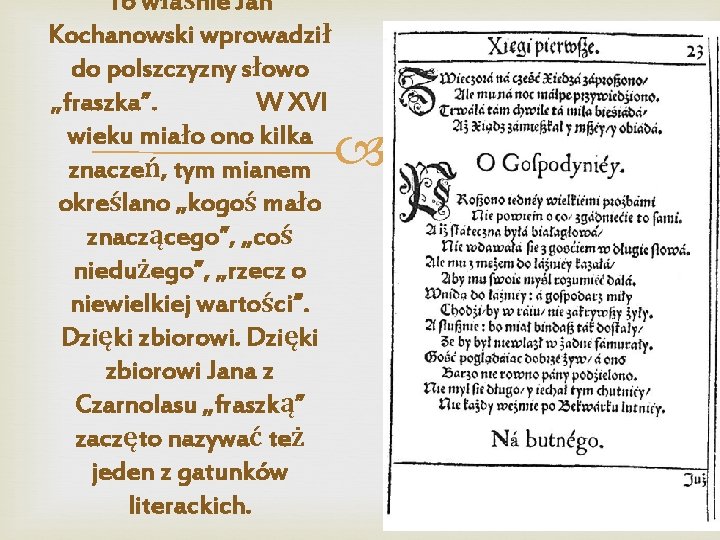 To właśnie Jan
Kochanowski wprowadził
do polszczyzny słowo
„fraszka”. W XVI
wieku miało ono kilka
znaczeń, tym mianem
określano „kogoś mało
znaczącego”, „coś
niedużego”, „rzecz o
niewielkiej wartości”.
Dzięki zbiorowi. Dzięki
zbiorowi Jana z
Czarnolasu „fraszką”
zaczęto nazywać też
jeden z gatunków
literackich.
Xięgi pierwſze. 23
Wieczorá ná cześć Xiędzá záproſzono/
Ale mu ná noc máłpę przywiedźiono.
Trwáłá tám chwilę tá miła bieśiádá/
Aż Xiądz zámieſzkał y mſzéy/ y obiádá.
O Goſpodyniéy.
PRoſzono iednéy wielkiémi proźbámi
Nie powiem o co/ zgádniećie to ſámi.
A iż ſtáteczna byłá białagłowá/
Nie wdawáłá ſię z gośćiem w długie ſłowá.
Ale mu z mężem do łáźniéy kazáłá/
Aby mu ſwoię myśl rozumieć dáłá.
Wnidą do łáźniey: á goſpodarz miły
Chodźi/ by w ráiu/ nie zákrywſzy żyły.
A ſłuſznie: bo miał bindaſz ták doſtáły/
Że by był niewlazł w żadné fámurały.
Gość poglądáiąc dobrze żyw/ á ono
Bárzo nie rowno pány podźielono.
Nie myl ſię długo/ y iechał tym chutniéy/
Nie káżdy weźmie po Bekwárku lutniéy.
Ná butnégo.
Już